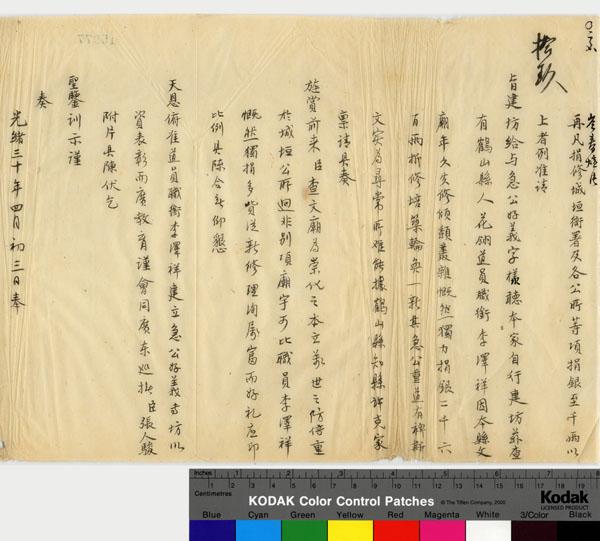 再凡捐修城垣衙署及各公所等項捐銀至千兩以
上者例准請
旨建坊給与急公好義字樣聽本家自行建坊茲查
有鶴山縣人花翎道員職銜李澤祥因本縣文
廟年久失修傾頹叢雜慨然獨力捐銀二千六
百兩折修培築輪奐一新其急公重道有裨斯
文实為尋常所难能據鶴山縣知縣許克家
稟請具奏
旌賞前來臣查文廟為崇化之本立萬世之防倍重
於城垣公所迥非別項廟宇可比職員李澤祥
慨然獨捐多貲從新修理洵属富而好礼應即
比例具陳合無仰懇
天恩俯准道員職銜李澤祥建立急公好義字坊以
資表彰而廣教育謹會同廣东巡撫臣張人駿
附片具陳伏乞
聖鑒訓示謹
奏
光緒三十年四月初三日奉
Inches
Centimetres
KODAK Color Control Patches
© The Tiffen Company, 2000
Kodak
LICENSED PRODUCT
Blue Cyan Green Yellow Red Magenta White 3/Color Black